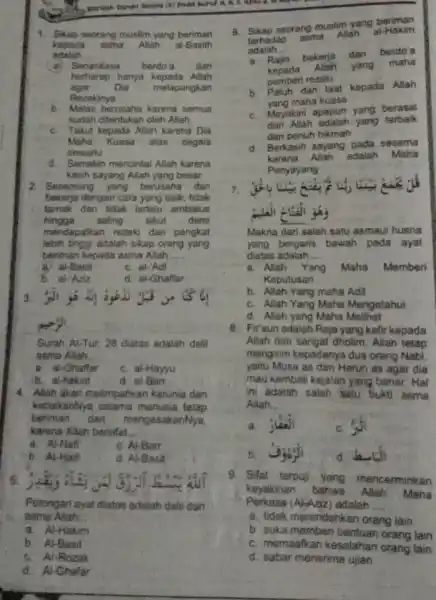 1. Sikap seorang muslim yang beriman
kepada asma Allah al-Basith
adalah
a. Senantiasa berdo'a dan
berharap hanya kepada Allah
agar Dia melapangkan
Rezekinya
b. Malas berusaha karena semua
sudah ditentukan oleh Allah
c. Takut kepada Allah karena Dia
Maha Kuasa atas segala
sesuatu
d. Semakin mencintai Allah karena
kasih sayang Allah yang besar
2. Seseorang yang berusaha dan
bekerja dengan cara yang baik, tidak
tamak dan tidak terlalu ambisius
hingga saling sikut demi
mendapatkan rezeki dan pangkat
lebih tinggi adalah sikap orang yang
beriman kepada asma Allah ....
a. al-Basit c. al-'Adl
b. al-'Aziz d. al-Ghaffar
3. إنا كنا من قبل ندعوه إنه هو البر
الرحيم
Surah At-Tur: 28 diatas adalah dalil
asma Allah
a. al-Ghaffar c. al-Hayyu
b. al-hakim d. al-Barr
4. Allah akan melimpahkan karunia dan
kebaikanNya selama manusia tetap
beriman dan mengesakanNya,
karena Allah bersifat...
a. Al-Nafi c. Al-Barr
b. Al-Hadi d. Al-Basit
5. الله يبسط الرزق لمن يشاء ويقدر
Potongan ayat diatas adalah dalil dari
asma Allah...
a. Al-Hakim
b. Al-Basit
c. Ar-Rozak
d. Al-Ghafar
6. Sikap seorang muslim yang beriman
terhadap asma Allah al-Hakim
adalah
a. Rajin bekerja dan berdo'a
kepada Allah yang maha
pemberi rezeki
b. Patuh dan taat kepada Allah
yang maha kuasa
c. Meyakini apapun yang berasal
dari Allah adalah yang terbaik
dan penuh hikmah
d. Berkasih sayang pada sesama
karena Allah adalah Maha
Penyayang
7. قل يجمع بيننا ربنا ثم يفتح بيننا بالحق
وهو الفتاح العليم
Makna dari salah satu asmaul husna
yang bergaris bawah pada ayat
diatas adalah....
a. Allah Yang Maha Memberi
Keputusan
b. Allah Yang maha Adil
c. Allah Yang Maha Mengetahui
d. Allah yang Maha Melihat
8. Fir'aun adalah Raja yang kafir kepada
Allah dan sangat dholim. Allah tetap
mengirim kepadanya dua orang Nabi,
yaitu Musa as dan Harun as agar dia
mau kembali kejalan yang benar. Hal
ini adalah salah satu bukti asma
Allah...
a. الغفار c. البر
b. الرءوف d. الباسط
9. Sifat terpuji yang mencerminkan
keyakinan bahwa Allah Maha
Perkasa (Al-Aziz) adalah ....
a. tidak merendahkan orang lain
b. suka memberi bantuan orang lain
c. memaafkan kesalahan orang lain
d. sabar menerima ujian